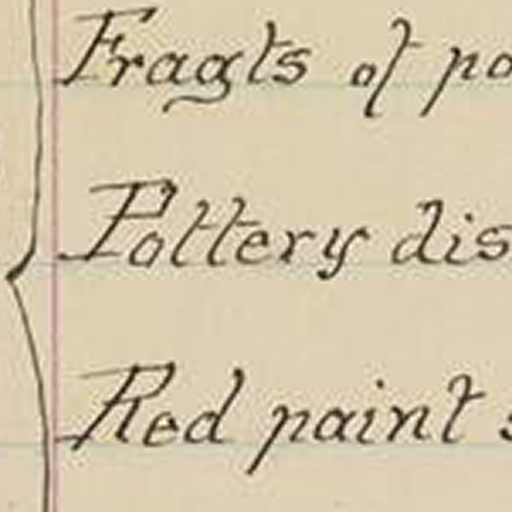 Fragts of po
Pottery dis
Red paint s